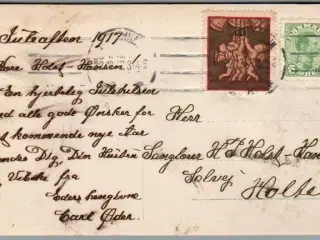 Juleaften 1917
Kære Holst Hansen!
En hjertelig Julehilsen
med alle gode Ønsker for
det kommende nye Aar
sendes Dig, Din Hustru
og
fra
Eders hengivne
Carl Oder.
Herr
Sanglærer H P Holst Han
Solvej
Holte
DANMARK